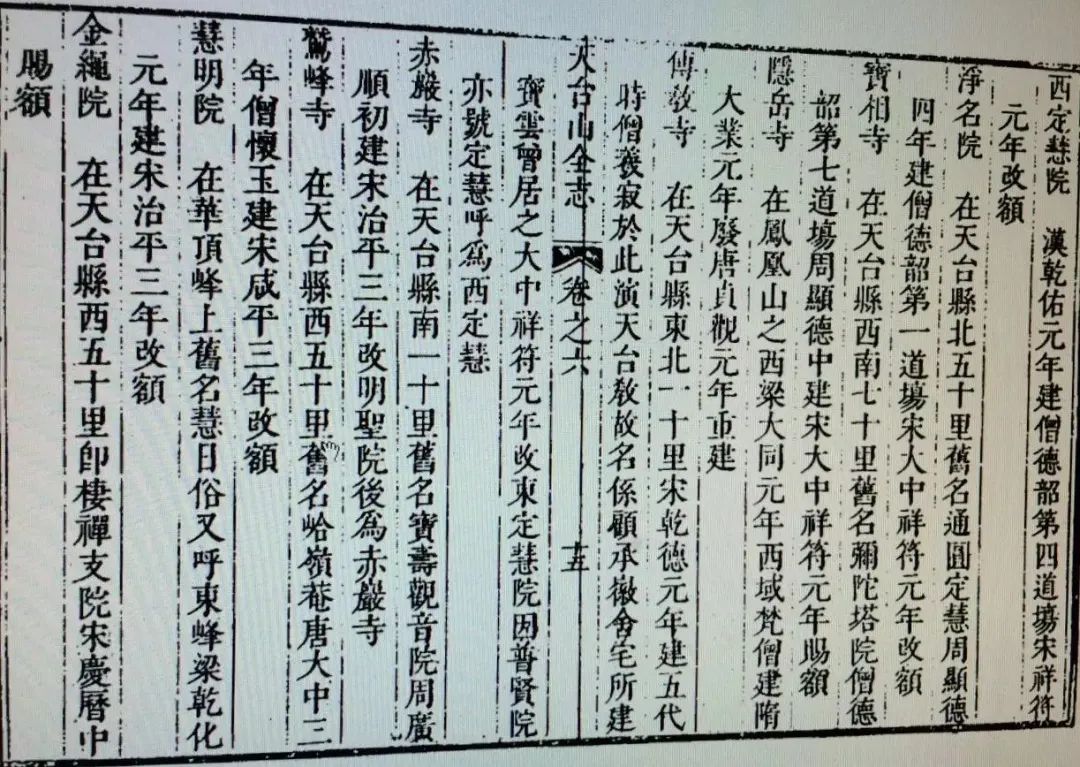 西定慧院 漢乾佑元年建僧德韶第四道場宋祥符
元年改額
淨名院 在天台縣北五十里舊名通圓定慧周顯德
四年建僧德韶第一道場宋大中祥符元年改額
寶相寺 在天台縣西南七十里舊名彌陀塔院僧德
韶第七道場周顯德中建宋大中祥符元年賜額
隱岳寺 在鳳凰山之西梁大同元年西域梵僧建隋
大業元年廢唐貞觀元年重建
傳教寺 在天台縣東北一十里宋乾德元年建五代
時僧羲寂於此演天台教故名係顧承徽舍宅所建
天台山全志 卷之六 十五
寶雲曾居之大中祥符元年改東定慧院因普賢院
亦號定慧呼為西定慧
赤巖寺 在天台縣南一十里舊名寶壽觀音院周廣
順初建宋治平三年改明聖院後為赤巖寺
鷲峰寺 在天台縣西五十里舊名蛤嶺菴唐大中三
年僧懷玉建宋咸平三年改額
慧明院 在華頂峰上舊名慧日俗又呼東峰梁乾化
元年建宋治平三年改額
金繩院 在天台縣西五十里卽棲禪支院宋慶曆中
賜額